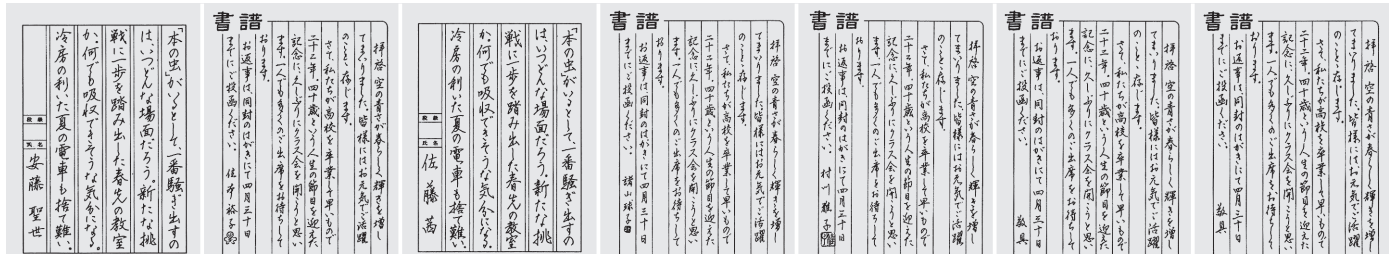 「本の虫」がいるとして、一番騒ぎ出すの
は、いつどんな場面だろう。新たな挑
戦に一歩を踏み出した春先の教室
か。何でも吸収できそうな気分になる。
冷房の利いた夏の電車も捨て難い。
段級
氏名
安藤聖世
書譜
拝啓 空の青さが春らしく輝きを増し
てまいりました。皆様にはお元気でご活躍
のことと存じます。
さて、私たちが高校を卒業して早いもので
二十二年。四十歳という人生の節目を迎えた
記念に、久しぶりにクラス会を開こうと思い
ます。一人でも多くのご出席をお待ちして
おります。
お返事は、同封のはがきにて四月三十日
までにご投函ください。
「本の虫」がいるとして、一番騒ぎ出すの
は、いつどんな場面だろう。新たな挑
戦に一歩を踏み出した春先の教室
か。何でも吸収できそうな気分になる。
冷房の利いた夏の電車も捨て難い。
段級
氏名
佐藤茜
書譜
拝啓 空の青さが春らしく輝きを増し
てまいりました。皆様にはお元気でご活躍
のことと存じます。
さて、私たちが高校を卒業して早いもので
二十二年。四十歳という人生の節目を迎えた
記念に、久しぶりにクラス会を開こうと思い
ます。一人でも多くのご出席をお待ちして
おります。
お返事は、同封のはがきにて四月三十日
までにご投函ください。
書譜
拝啓 空の青さが春らしく輝きを増し
てまいりました。皆様にはお元気でご活躍
のことと存じます。
さて、私たちが高校を卒業して早いもので
二十二年。四十歳という人生の節目を迎えた
記念に、久しぶりにクラス会を開こうと思い
ます。一人でも多くのご出席をお待ちして
おります。
お返事は、同封のはがきにて四月三十日
までにご投函ください。 村川雅子
書譜
拝啓 空の青さが春らしく輝きを増し
てまいりました。皆様にはお元気でご活躍
のことと存じます。
さて、私たちが高校を卒業して早いもので
二十二年。四十歳という人生の節目を迎えた
記念に、久しぶりにクラス会を開こうと思い
ます。一人でも多くのご出席をお待ちして
おります。
お返事は、同封のはがきにて四月三十日
までにご投函ください。 敬具
書譜
拝啓 空の青さが春らしく輝きを増し
てまいりました。皆様にはお元気でご活躍
のことと存じます。
さて、私たちが高校を卒業して早いもので
二十二年。四十歳という人生の節目を迎えた
記念に、久しぶりにクラス会を開こうと思い
ます。一人でも多くのご出席をお待ちして
おります。
お返事は、同封のはがきにて四月三十日
までにご投函ください。 敬具